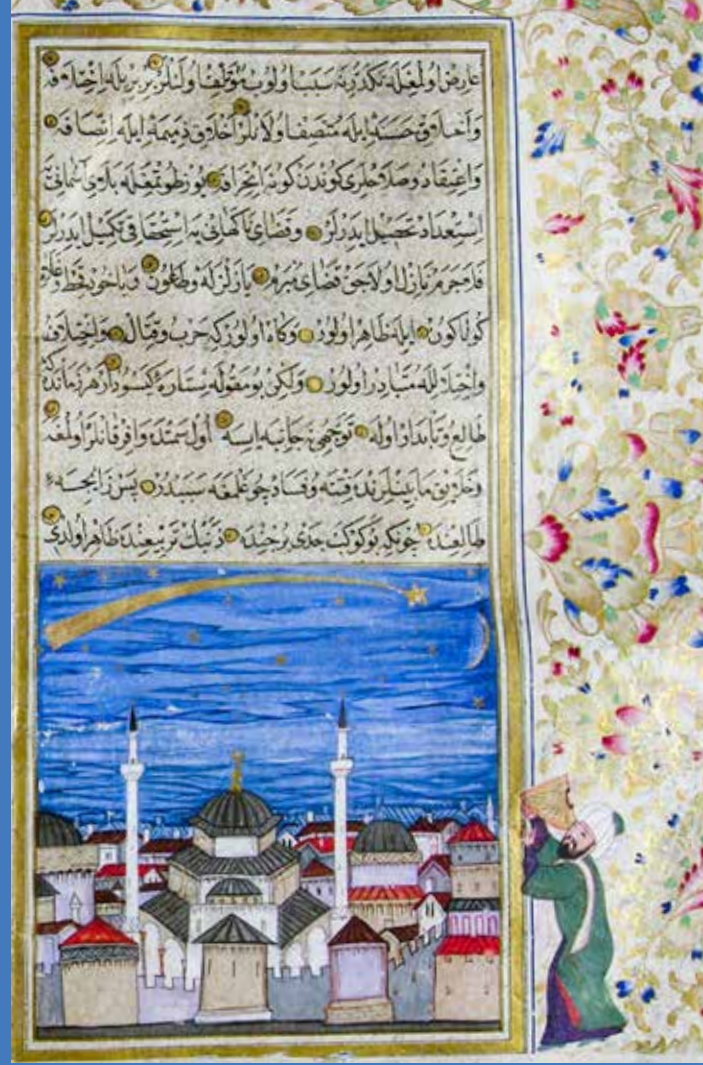 عارض اولمغله تكدرينه سبب اولوب مؤتلف اولنلر بربريله اختلافه
واخلاق حسنه ايله متصف اولانلر اخلاق ذميمه ايله اتصافه
واعتقاد وصلاحلرى كوندن كونه انحرافه يوز طوتمغله بلاى آسمانى يه
استعداد تحصيل ايدرلر وقضاى ناكهانى يه استحقاقى تكميل ايدرلر
فلاجرم نازل اولاجق قضاى مبرم يا زلزله وطاعون ويا خود قحط وغلاى
كوناكون ايله ظاهر اولور وكاه اولور كه حرب وقتال واختلاف
واختلالله متبادر اولور ولكن بو مقوله ستاره كيسودار هر زمانده كه
طالع وتابدار اوله توجهى نه جانبه ايسه اول سمتده وافر قانلر اولمغه
وخلق مابينلرنده فتنه وفساد چوغلمغه سببدر پس زايجه
طالعنده چونكه بو كوكب جدى برجنده ذنبك تربيعنده ظاهر اولدى